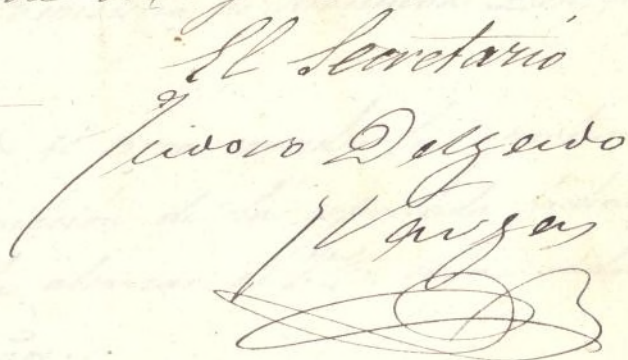 El Secretario
Isidoro Delgado
y Vargas